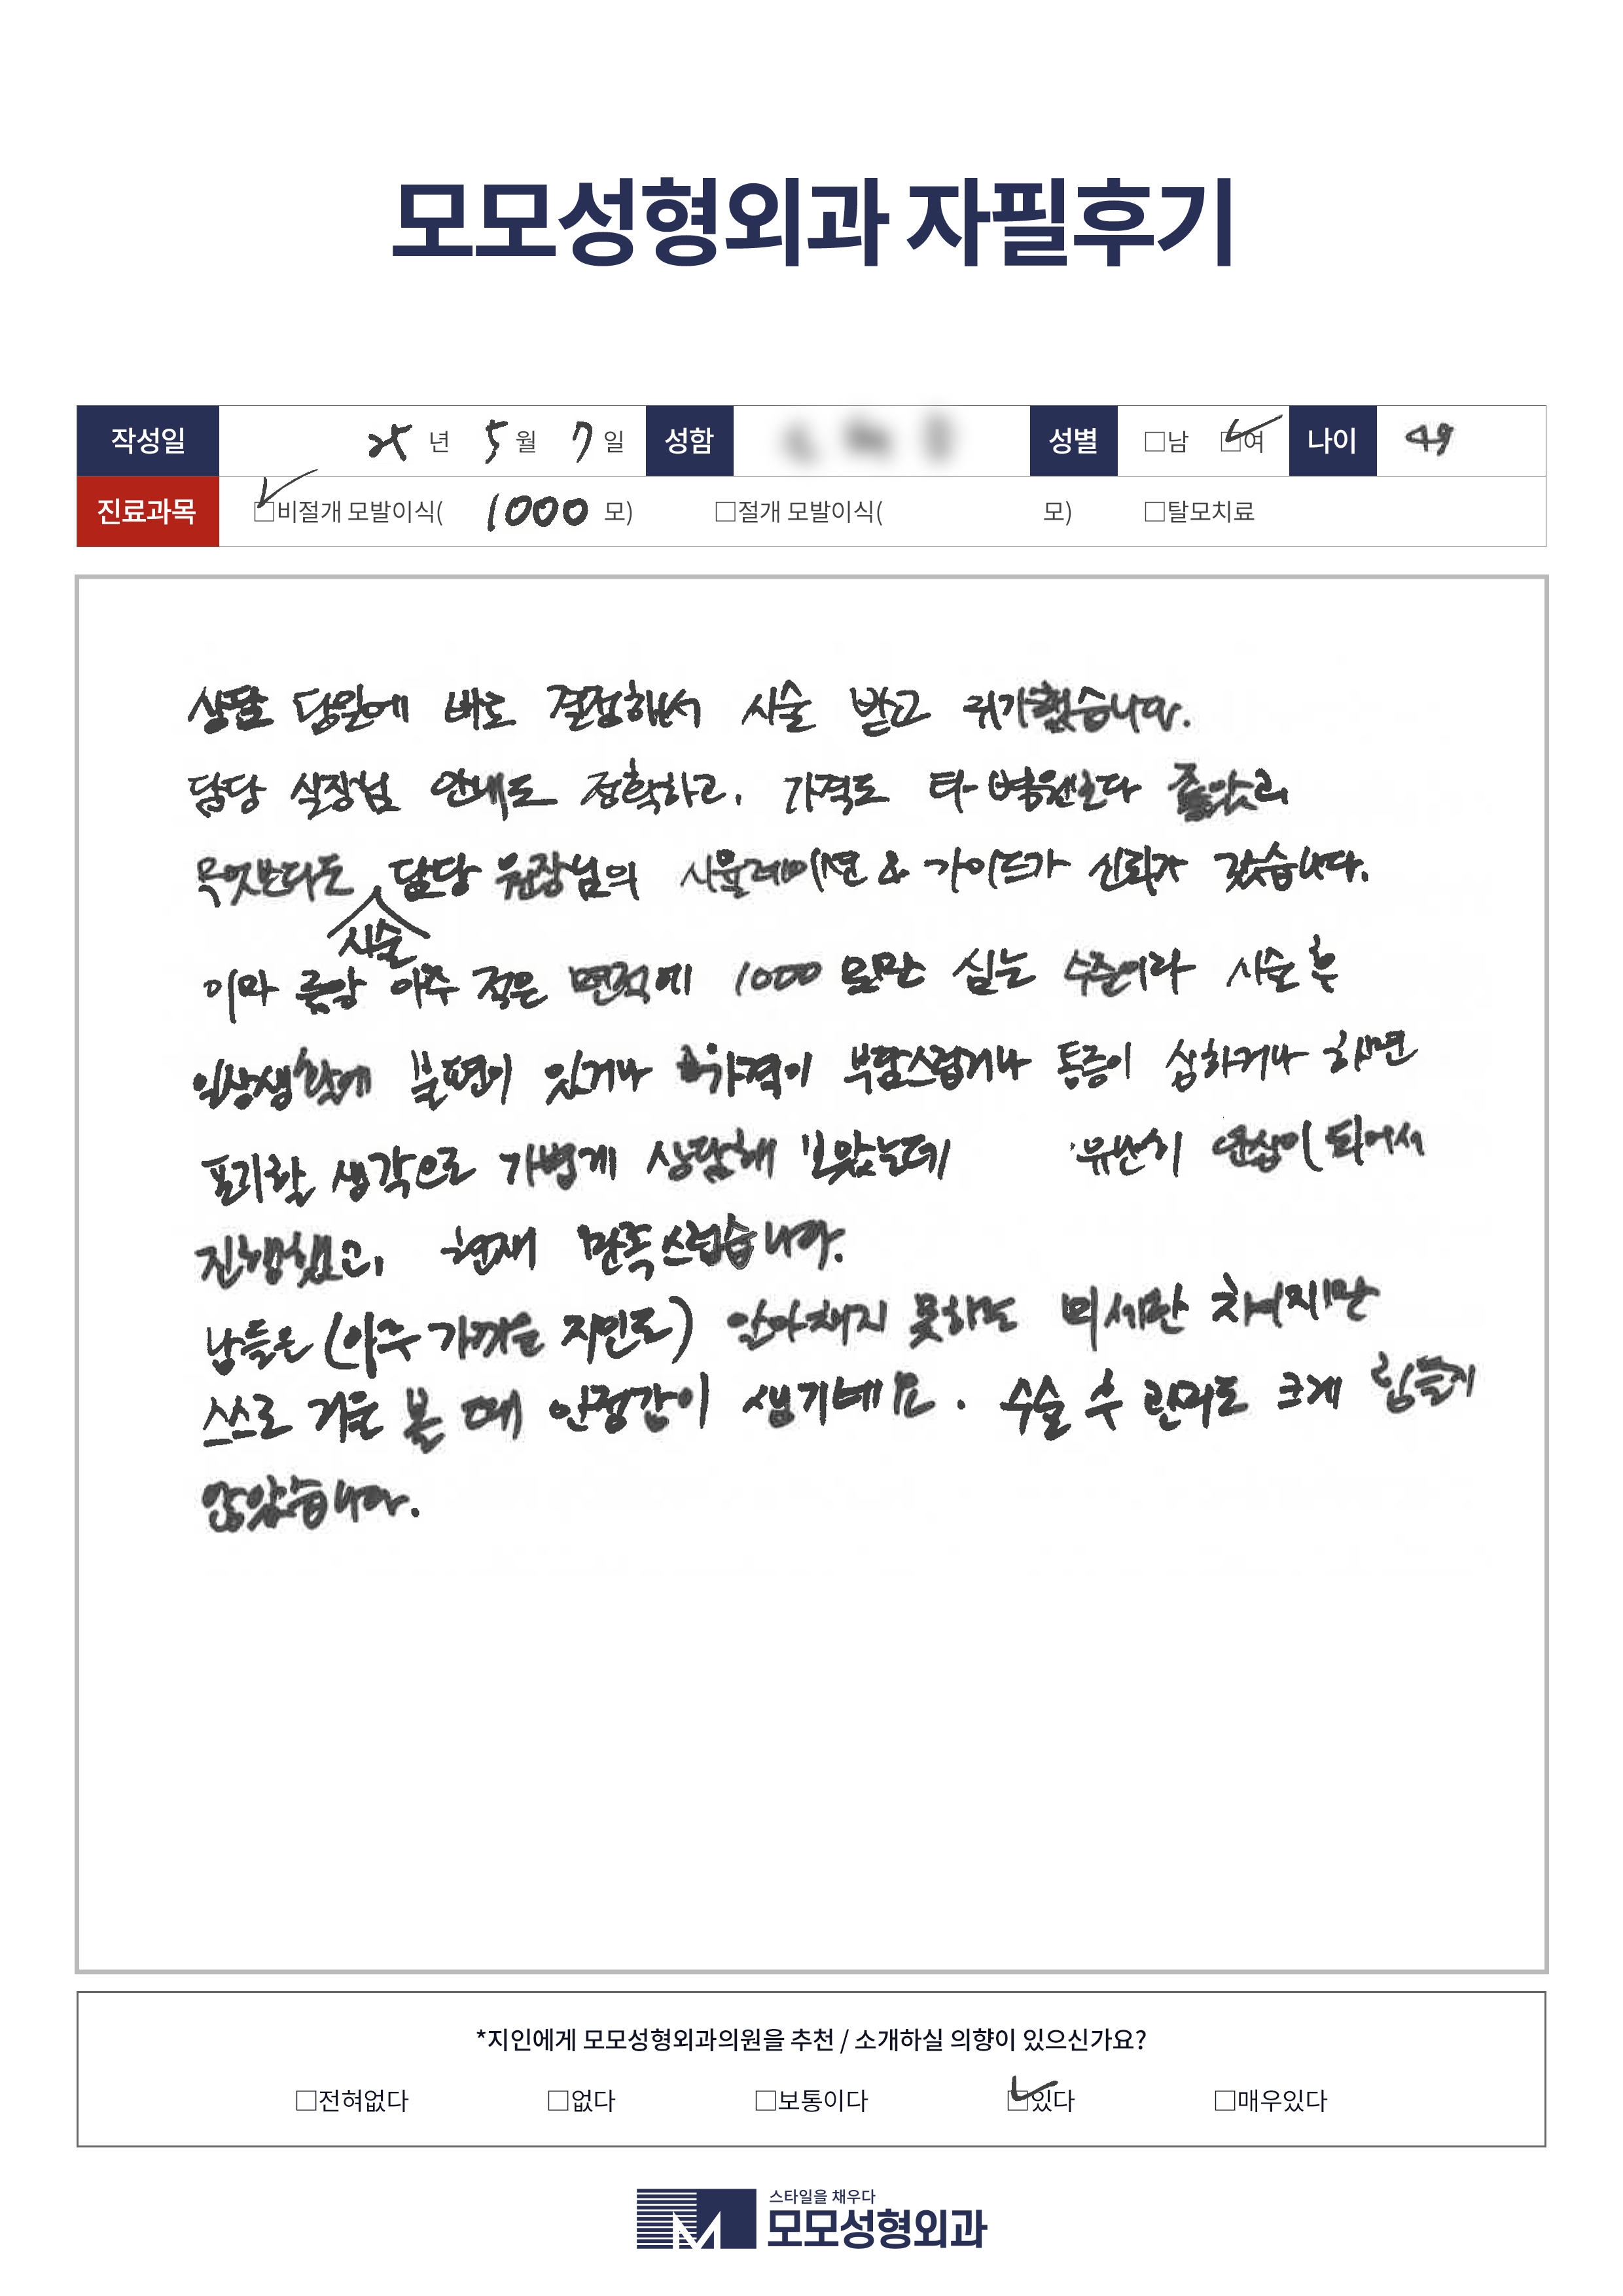 모모성형외과 자필후기
작성일 25 년 5 월 7 일 성함 성별 □남 ☑여 나이 49
진료과목 ☑비절개 모발이식( 1000 모) □절개 모발이식( 모) □탈모치료
상담 당일에 바로 결정해서 시술 받고 귀가했습니다.
담당 실장님 안내도 정확하고, 가격도 타 병원보다 좋았고
무엇보다도 담당 원장님의 시뮬레이션 & 가이드가 신뢰가 갔습니다.
시술
이마 라인 아주 적은 면적에 1000모만 심는 수준이라 시술 후
일상생활에 불편이 있거나 가격이 부담스럽거나 통증이 심하거나 하면
포기할 생각으로 가볍게 상담해 보았는데 유난히 안심이 되어서
진행했고, 현재 만족스럽습니다.
남들은 (아주 가까운 지인도) 알아채지 못하는 미세한 차이지만
스스로 거울 볼 때 안정감이 생기네요. 수술 후 관리도 크게 힘들지
않았습니다.
*지인에게 모모성형외과의원을 추천 / 소개하실 의향이 있으신가요?
□전혀없다 □없다 □보통이다 ☑있다 □매우있다
스타일을 채우다
모모성형외과